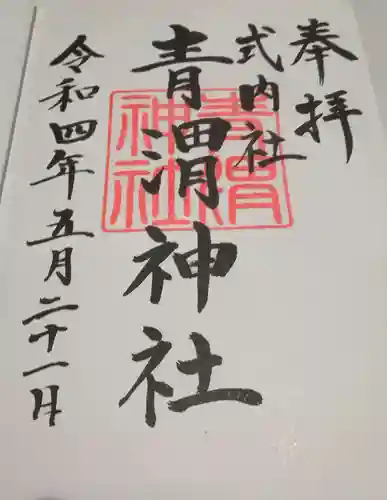 奉拝
式内社
青渭神社
令和四年五月二十一日
青渭神社